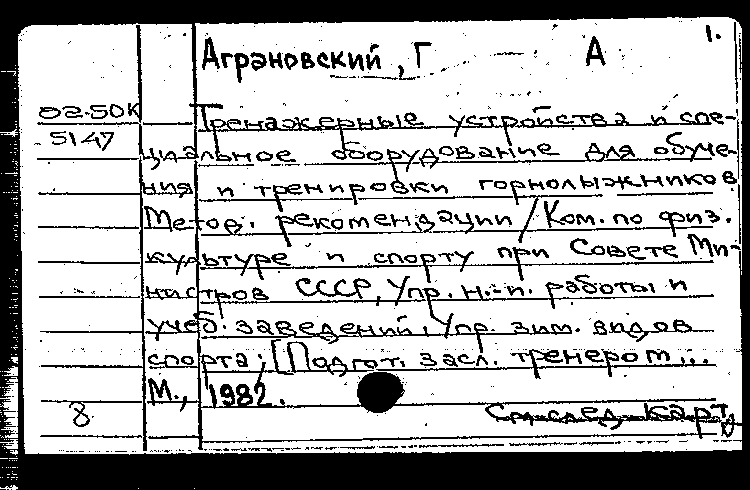 1.
Аграновский, Г А
82-50К
5147
Тренажерные устройства и спе-
циальное оборудование для обуче-
ния и тренировки горнолыжников
Метод. рекомендации / Ком. по физ.
культуре и спорту при Совете Ми-
нистров СССР, Упр. н.-и. работы и
учеб. заведений, Упр. зим. видов
спорта; [Подгот. засл. тренером...
М., 1982.
8
См. след. карт.